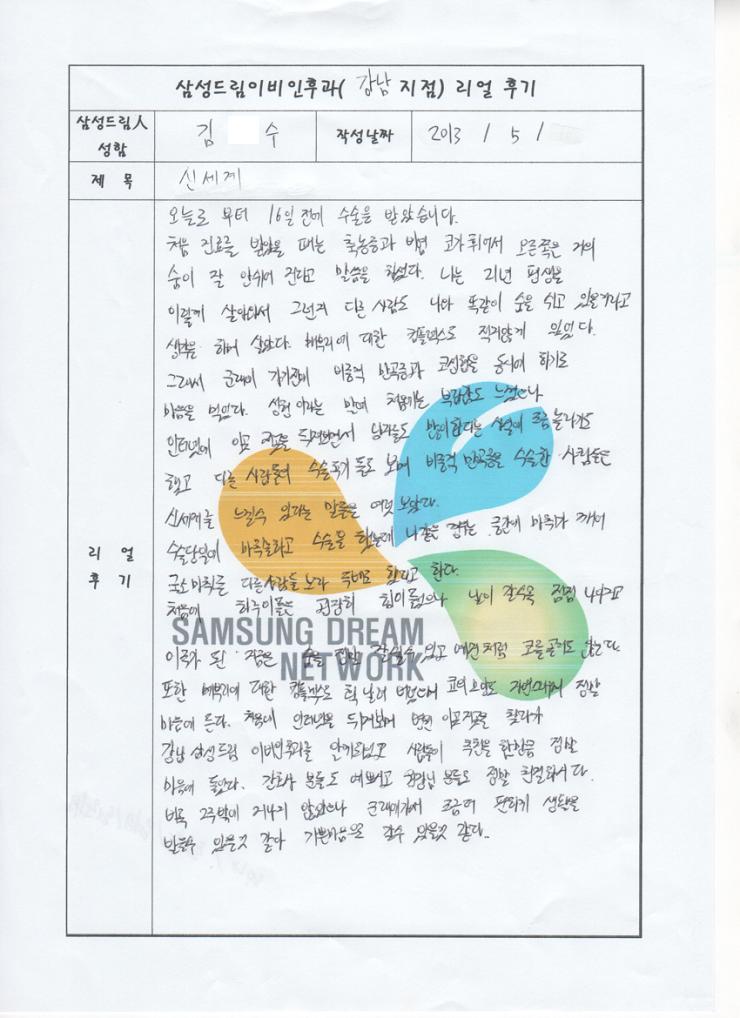 삼성드림이비인후과( 강남 지점) 리얼 후기
삼성드림人 성함
김 수
작성날짜
2013 / 5 /
제 목
신세계
리 얼 후 기
오늘로 부터 16일 전에 수술을 받았습니다.
처음 진료를 받았을 때는 축농증과 비염 코가 휘어서 오른쪽은 거의
숨이 잘 안쉬어 진다고 말씀을 하셨다. 나는 21년 평생을
이렇게 살아와서 그런지 다른 사람도 나와 똑같이 숨을 쉬고 있을거라고
생각을 하며 살았다. 매부리에 대한 컴플렉스도 적지않게 있었다.
그래서 군대에 가기전에 비중격 만곡증과 코성형을 동시에 하기로
마음을 먹었다. 성형 이라는 말에 처음에는 부담감도 느꼈으나
인터넷에 이곳 저곳을 뒤져보면서 남자들도 많이한다는 사실에 조금 놀라기도
했고 다른 사람들의 수술후기 등도 보며 비중격 만곡증을 수술한 사람들은
신세계를 느낄수 있다는 말들을 여럿 보았다.
수술당일에 마취를하고 수술을 했는데 나같은 경우는 중간에 마취가 깨어
국소마취를 다른사람들 보다 두배로 했다고 한다.
처음에 하루이틀은 굉장히 힘이들었으나 날이 갈수록 점점 나아지고
SAMSUNG DREAM
NETWORK
이주가 된 지금은 숨을 정말 잘쉴수 있고 예전처럼 코를골지도 않는다.
또한 매부리에 대한 컴플렉스도 확 날려 버렸으며 코의 모양도 자연스러워서 정말
마음에 든다. 처음에 인터넷을 뒤져보며 어떤 이곳저곳을 찾다가
강남 삼성드림 이비인후과를 알게되었고 사람들이 추천을 한만큼 정말
마음에 들었다. 간호사 분들도 예쁘시고 원장님 분들도 정말 친절하셨다.
비록 2주밖에 지나지 않았으나 군대에가서 조금더 편하게 생활을
할수 있을것 같아 기쁜마음으로 갈수 있을것 같다..